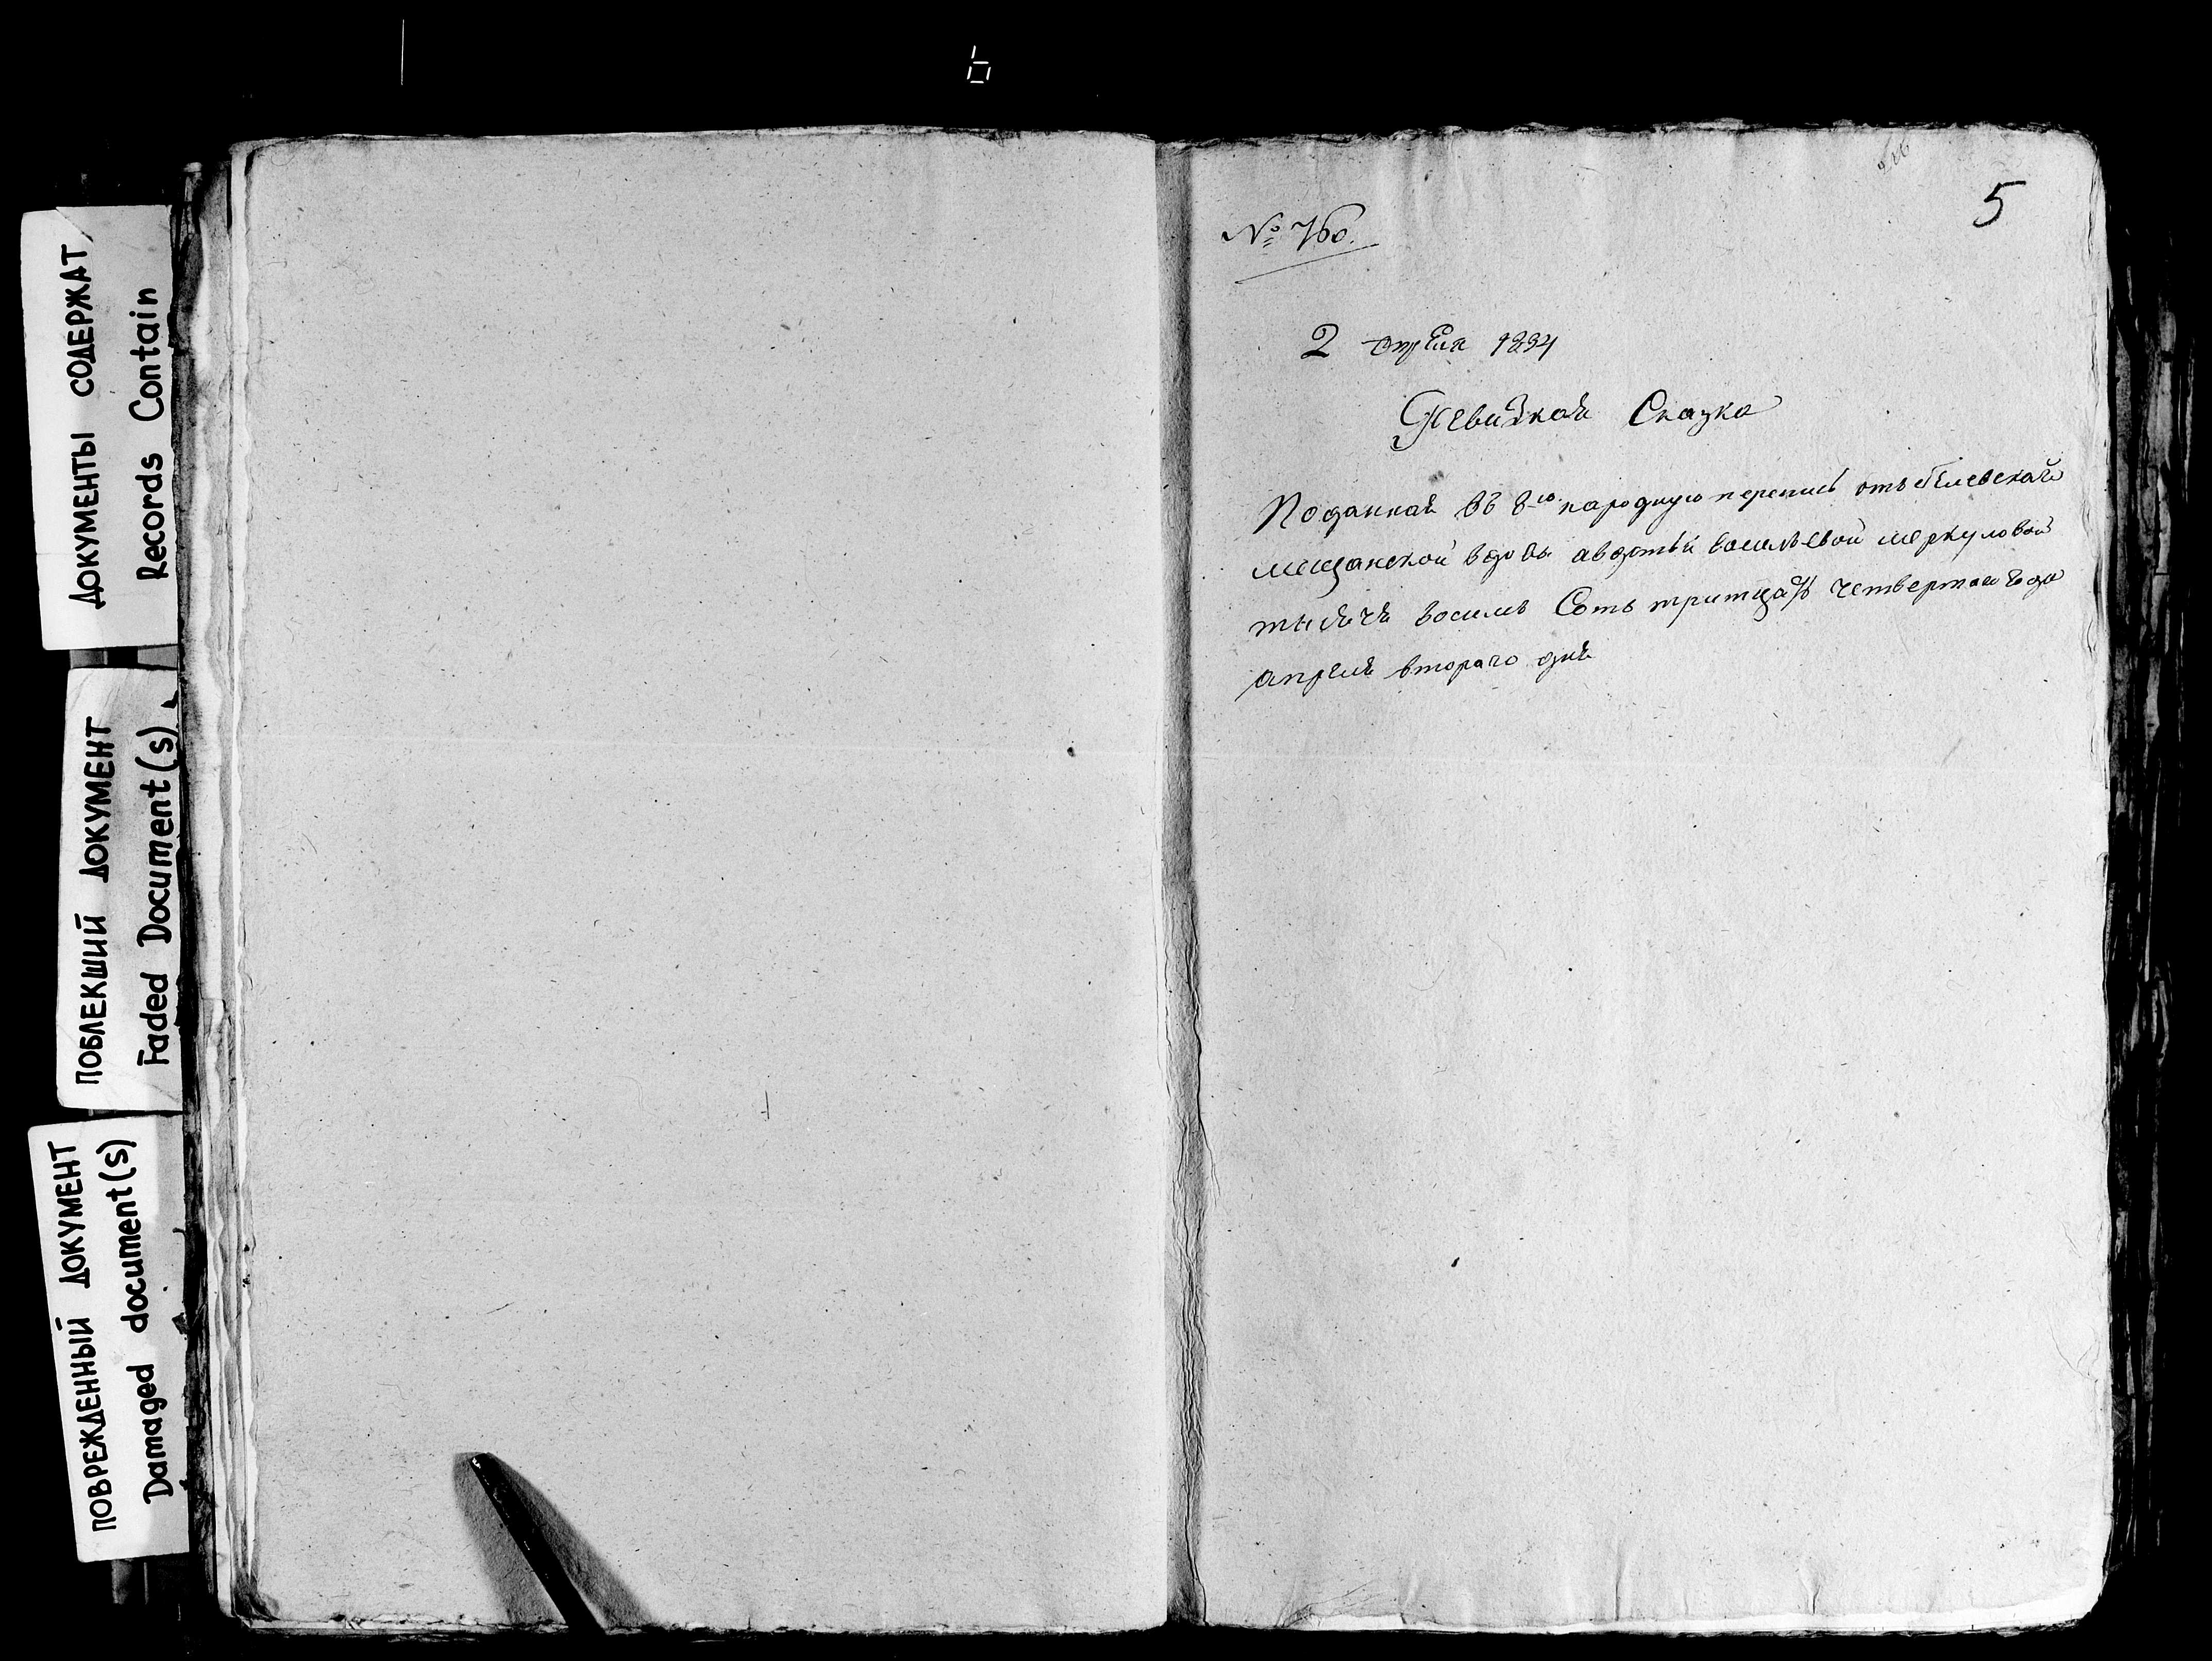 6
ДОКУМЕНТЫ СОДЕРЖАТ
Records Contain
ПОБЛЕКШИЙ ДОКУМЕНТ
Faded Document(s)
ПОВРЕЖДЕННЫЙ ДОКУМЕНТ
Damaged document(s)
5
№ 760.
2 апреля 1834
Ревизкая Сказка
Поданная въ 8ю народную перепись отъ белевской
мещанской вдовы авдотьи васильевой меркуловой
тысяча восимь Соть тритцать четвертаго года
апреля втораго дня